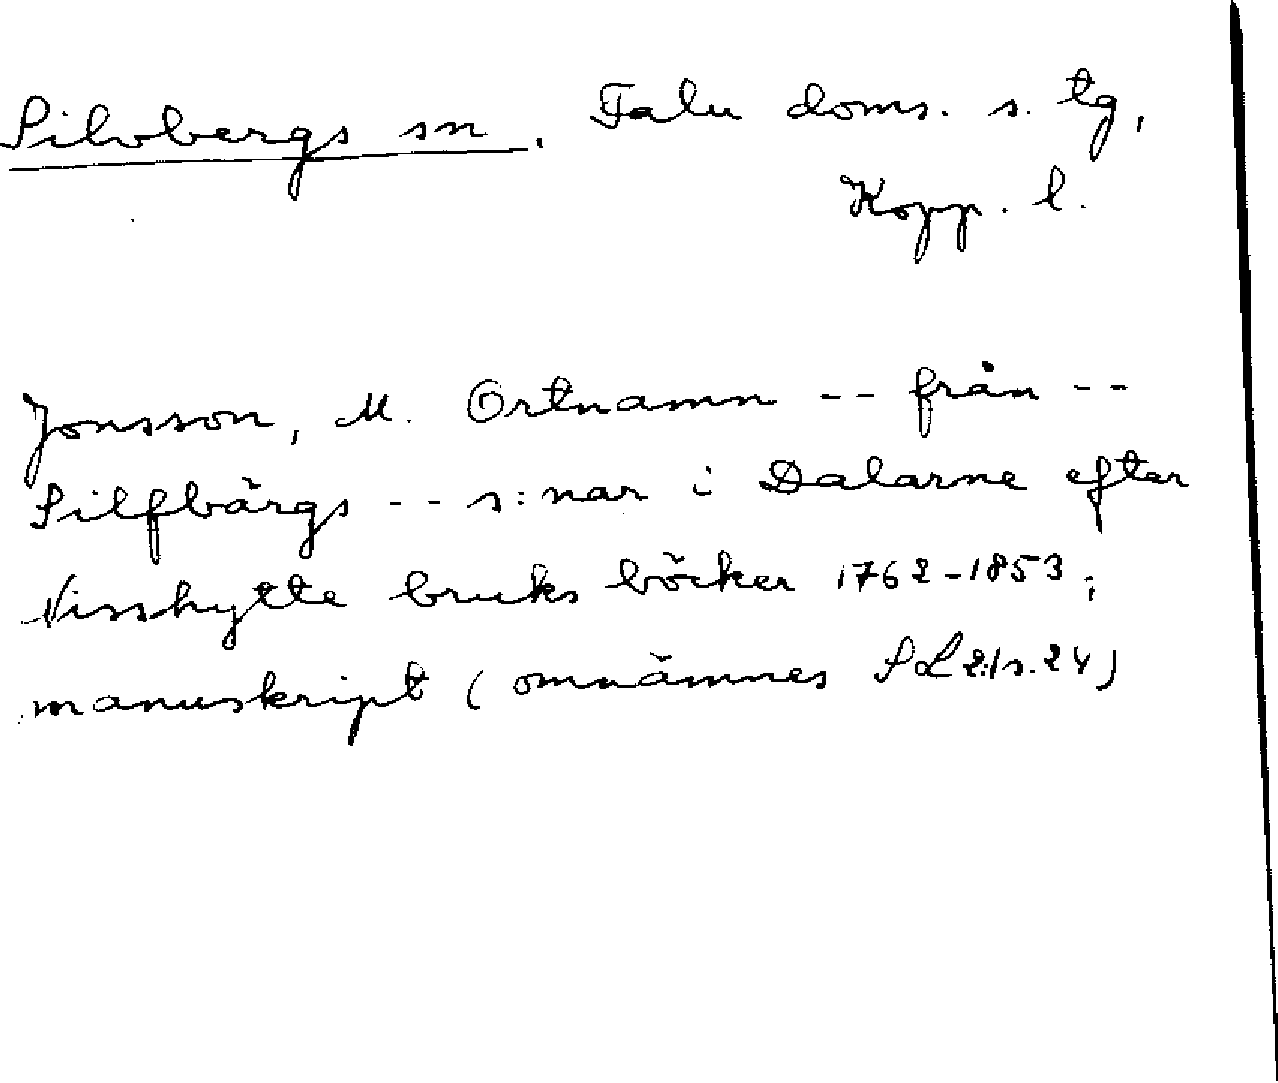 Silvbergs sn. Falu doms. s. tg,
Kopp. l.
Jonsson, M. Ortnamn -- från --
Silfbärgs -- s:nar i Dalarne efter
Nisshytte bruks böcker 1762-1853;
manuskript (omnämnes SL 2:1 s. 24)